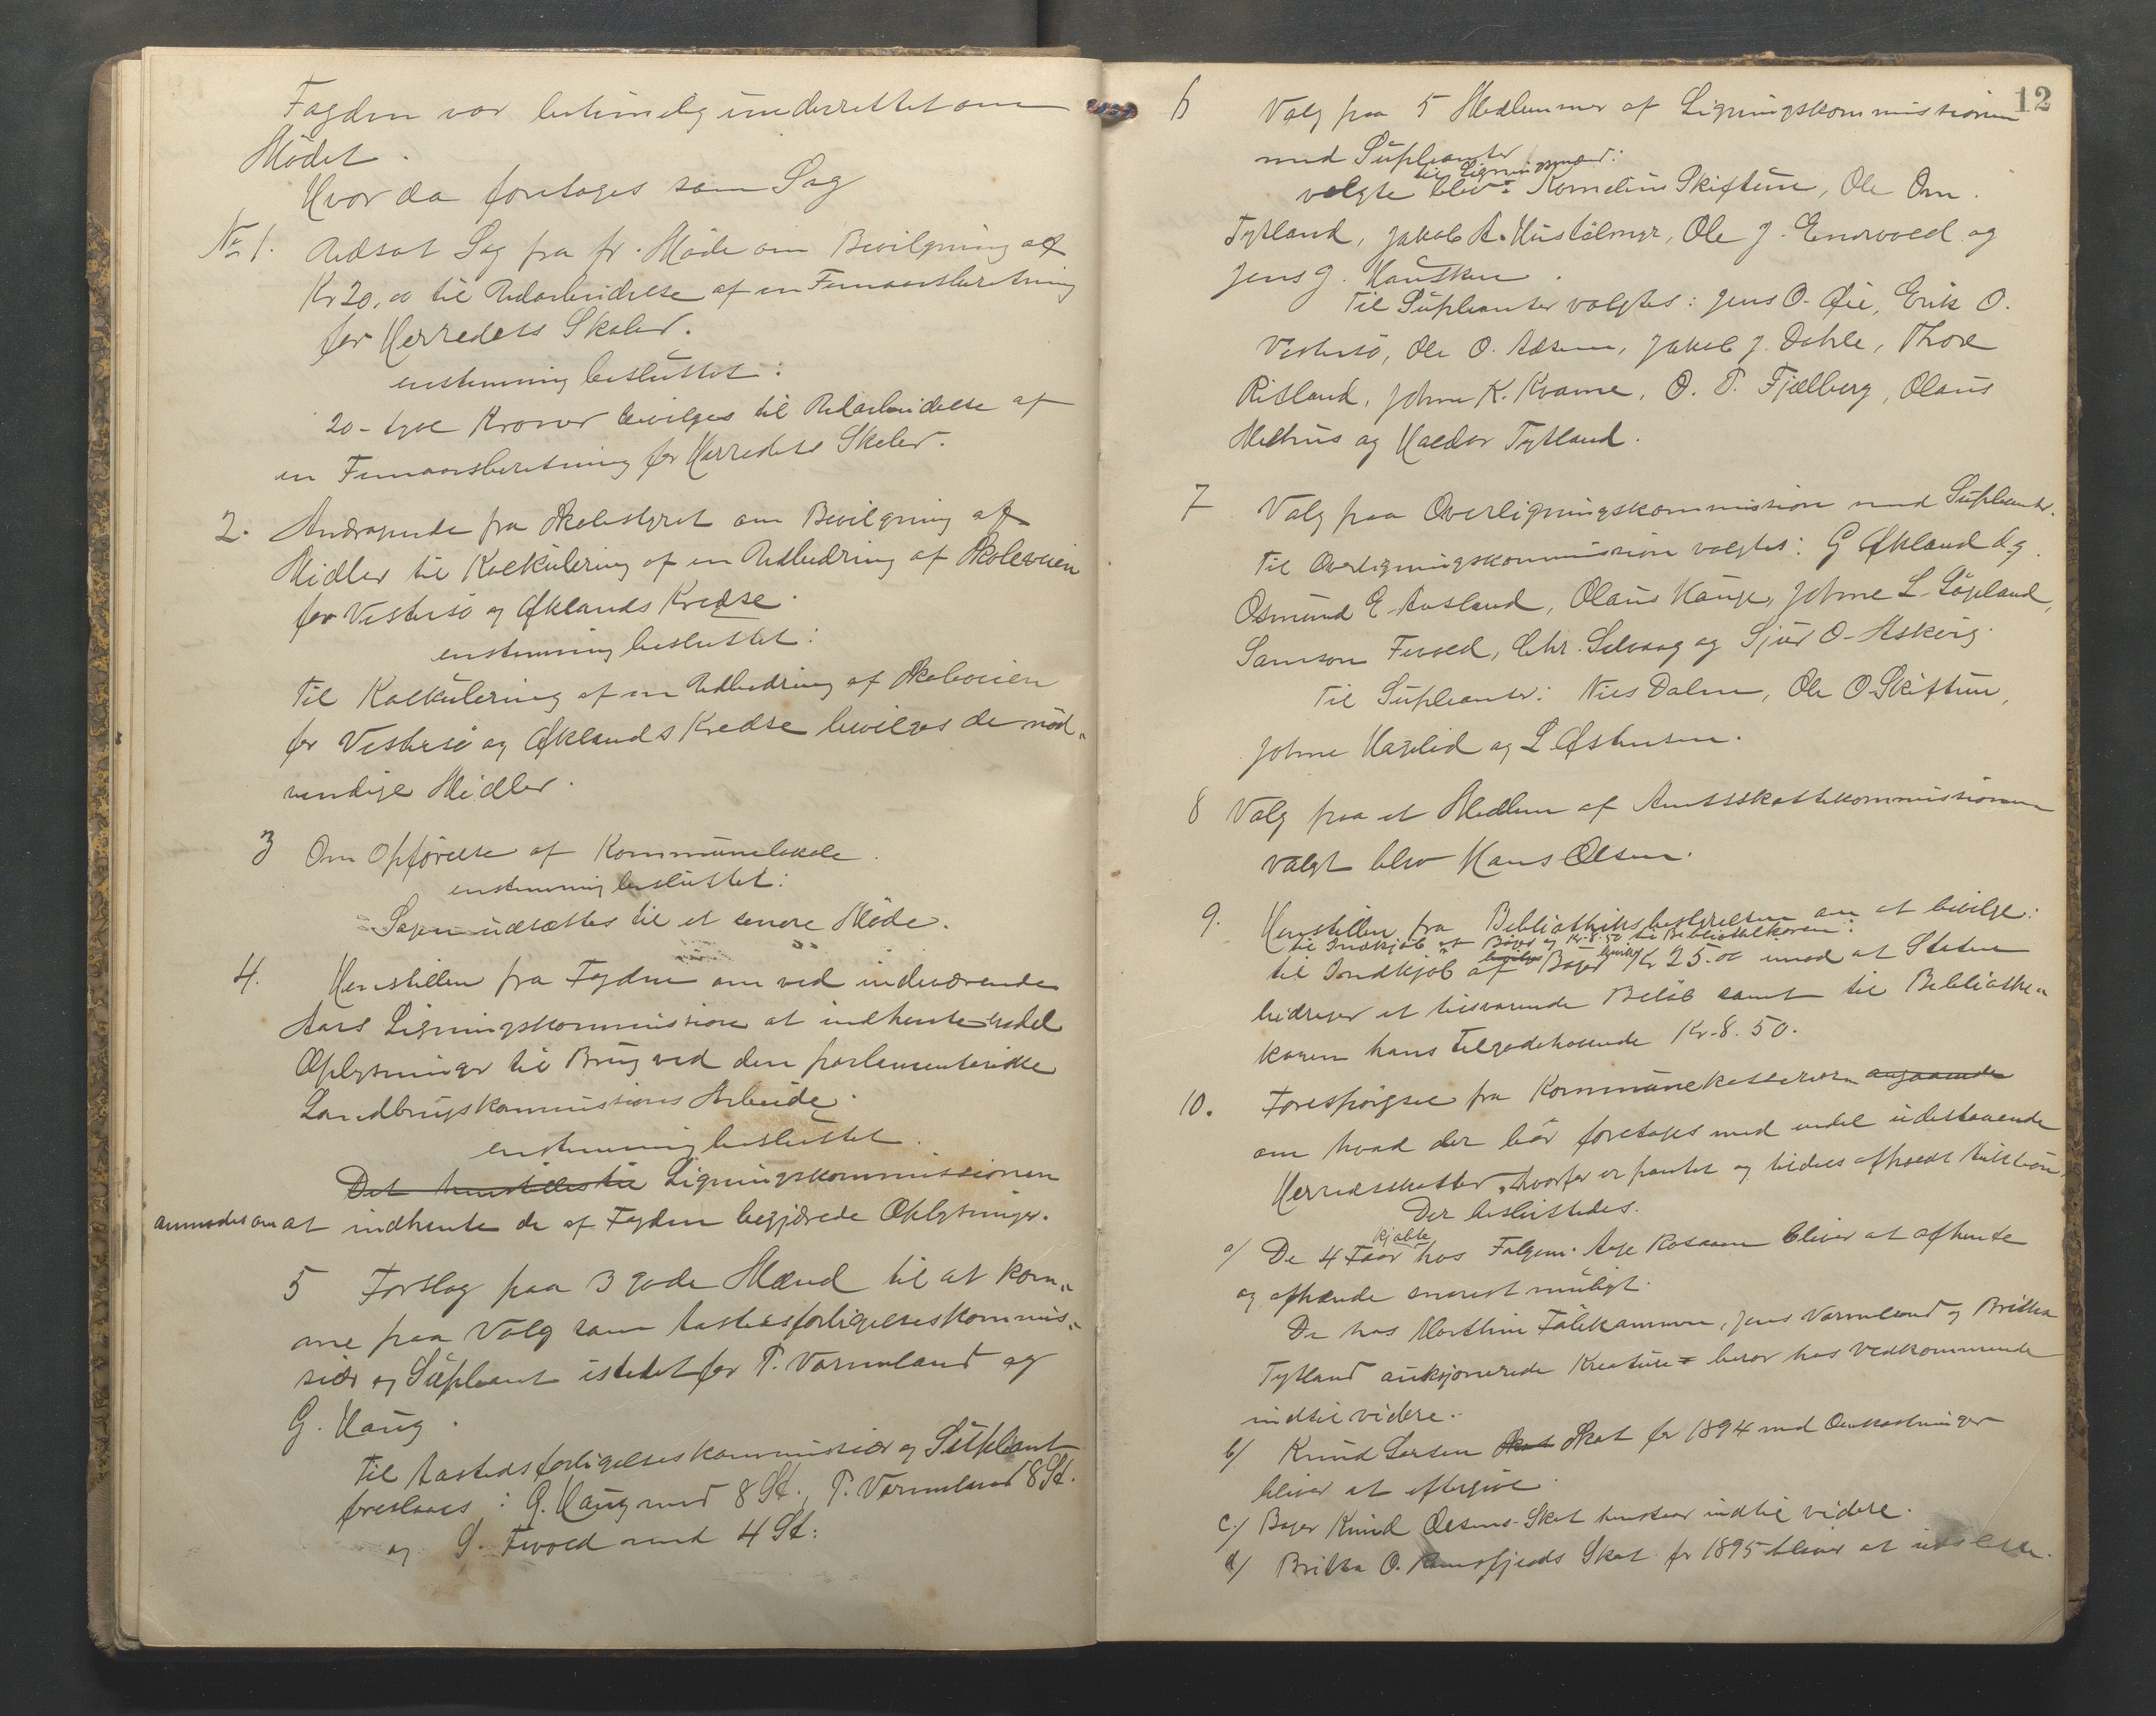 Fogden var betimelig underrettet om
Mödet.
Hvor da foretoges som Sag
No 1. Udsat Sag fra fr. Möde om Bevilgning af
Kr 20,00 til Udarbeidelse af en Femaarsberetning
for Herredets Skoler.
enstemmig besluttet:
20 - tyve Kroner bevilges til Udarbeidelse af
en Femaarsberetning for Herredets Skoler.
2. Andragende fra Skolestyret om Bevilgning af
Midler til Kalkulering af en Udbedring af Skoleveien
for Vestersö og Öklands Kredse.
enstemmig besluttet:
Til Kalkulering af en Udbedring af Skoleveien
for Vestersö og Öklands Kredse bevilges de nöd-
vendige Midler.
3 Om Opförelse af Kommunelokale.
enstemmig besluttet:
Sagen udsættes til et senere Möde.
4. Henstillen fra Fogden om ved indeværende
Aars Ligningskommission at indhente endel
Oplysninger til Brug ved den parlementariske
Landbrugskommissions Arbeide.
enstemmig besluttet.
Det henstilles til Ligningskommissionen
anmodes om at indhente de af Fogden begjærede Oplysninger.
5 Forslag paa 3 gode Mænd til at kom-
me paa Valg som Aastedsforligelseskommis-
sær og Supleant istedetfor P. Varmeland og
G. Haug.
Til Aastedsforligelseskommissær og Supleant
foreslaaes: G. Haug med 8 St., P. Varmeland 8 St.
og S. Fevold med 4 St:
12
6 Valg paa 5 Medlemmer af Ligningskommissionen
med Supleanter
til Ligningsmænd:
valgte blev: Kornelius Skiftun, Ole Om.
Tytland, Jakob A. Hustölmyr, Ole J. Enevold og
Jens J. Hausken.
Til Supleanter valgtes: Jens O. Öie, Erik O.
Vestersö, Ole O. Aasen, Jakob J. Dahle, Thore
Risland, Johne K. Kvame, O. T. Fjælberg, Olaus
Methus og Haldor Tytland.
7 Valg paa Overligningskommission med Supleanter.
Til Overligningskommission valgtes: G Ökland d.y.
Osmund E. Austand, Olaus Hauge, Johne L. Lögeland,
Samson Fevold, Chr. Selvaag og Sjur O. Askvig.
Til Supleanter: Nils Dalen, Ole O. Skiftun,
Johne Hagelid og L. Östhusen.
8 Valg paa et Medlem af Amtsskattekommissionen
valgt blev Hans Olsen.
9. Henstillen fra Bibliotheksbestyrelsen om at bevilge:
til Indkjöb af Böger og Kr. 8.50 til Bibliothekaren:
til Indkjöb af Böger bevilges Kr 25.00 imod at Staten
bidrager et tilsvarende Belöb samt til Bibliothe-
karen hans tilgodehavende Kr. 8.50.
10. Forespörgsel fra Kommunekassereren angaaende
om hvad der bör foretages med endel udestaaende
Herredsskatter, hvorfor er pantet og tildels afholdt Auktion.
Der besluttedes.
kjöbte
a/ De 4 Faar hos Folgem. Aage Rosaaen bliver at afhente
og afhænde snarest muligt.
De hos Marthin Fölekammen, Jens Varmeland og Britha
Tytland auksjonerede Kreature beror hos Vedkommende
indtil videre.
b/ Knud Larsen Skat Skat for 1894 med Omkostninger
bliver at eftergive.
c./ Bager Knud Olsens Skat henstaar indtil videre.
d/ Britha O. Ramsfjelds Skat for 1895 bliver at udslette.